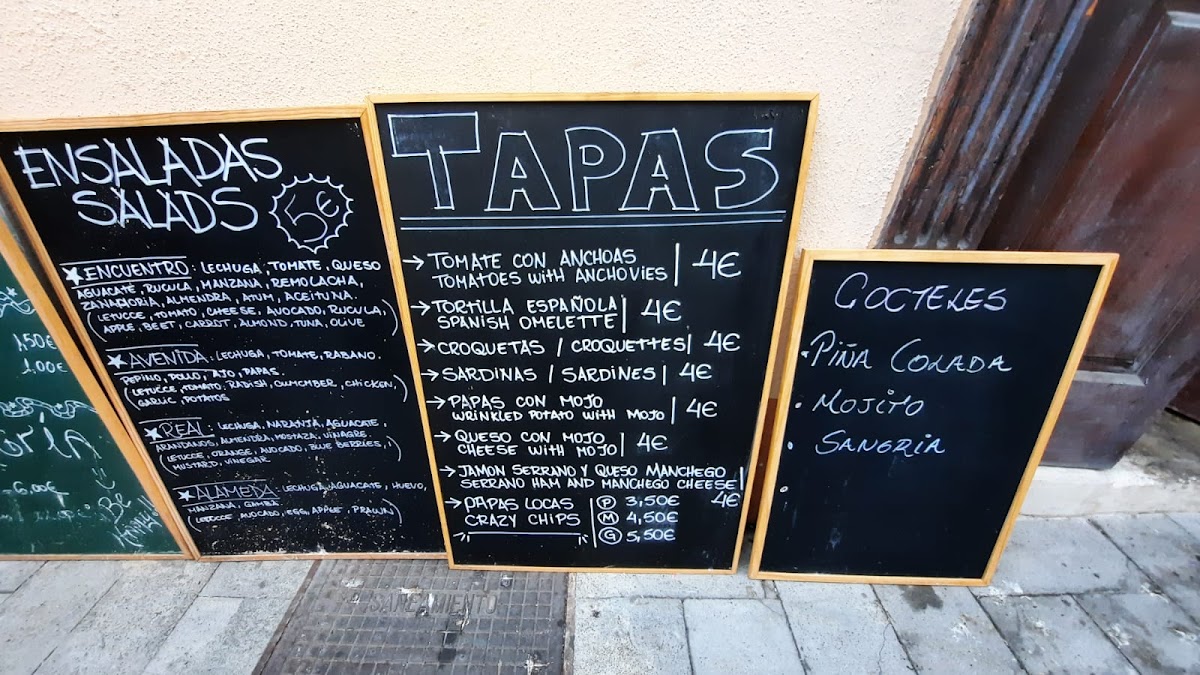 1.50€
1.00€
6,00€
Be
ENSALADAS
SALADS
5€
ENCUENTRO: LECHUGA, TOMATE, QUESO
AGUACATE, RUCULA, MANZANA, REMOLACHA,
ZANAHORIA, ALMENDRA, ATUM, ACEITUNA.
(LETUCCE, TOMATO, CHEESE, AVOCADO, RUCULA,
APPLE, BEET, CARROT, ALMOND, TUNA, OLIVE)
AVENIDA: LECHUGA, TOMATE, RABANO.
PEPINO, POLLO, AJO, PAPAS.
(LETUCCE, TOMATO, RADISH, CUMCMBER, CHICKEN,
GARLIC, POTATOS)
REAL: LECHUGA, NARANJA, AGUACATE,
ARANDANOS, ALMENDRA, MOSTAZA, VINAGRE.
(LETUCCE, ORANGE, AVOCADO, BLUE BERRIES,
MUSTARD, VINEGAR)
ALAMEDA: LECHUGA, AGUACATE, HUEVO,
MANZANA, GAMBA
(LETUCCE, AVOCADO, EGG, APPLE, PRAWN)
TAPAS
→ TOMATE CON ANCHOAS
TOMATOES WITH ANCHOVIES | 4€
→ TORTILLA ESPAÑOLA
SPANISH OMELETTE | 4€
→ CROQUETAS / CROQUETTES | 4€
→ SARDINAS / SARDINES | 4€
→ PAPAS CON MOJO
WRINKLED POTATO WITH MOJO | 4€
→ QUESO CON MOJO
CHEESE WITH MOJO | 4€
→ JAMON SERRANO Y QUESO MANCHEGO
SERRANO HAM AND MANCHEGO CHEESE | 4€
→ PAPAS LOCAS
CRAZY CHIPS
P 3,50€
M 4,50€
G 5,50€
COCTELES
• PIÑA COLADA
• MOJITO
• SANGRIA
SANEAMIENTO